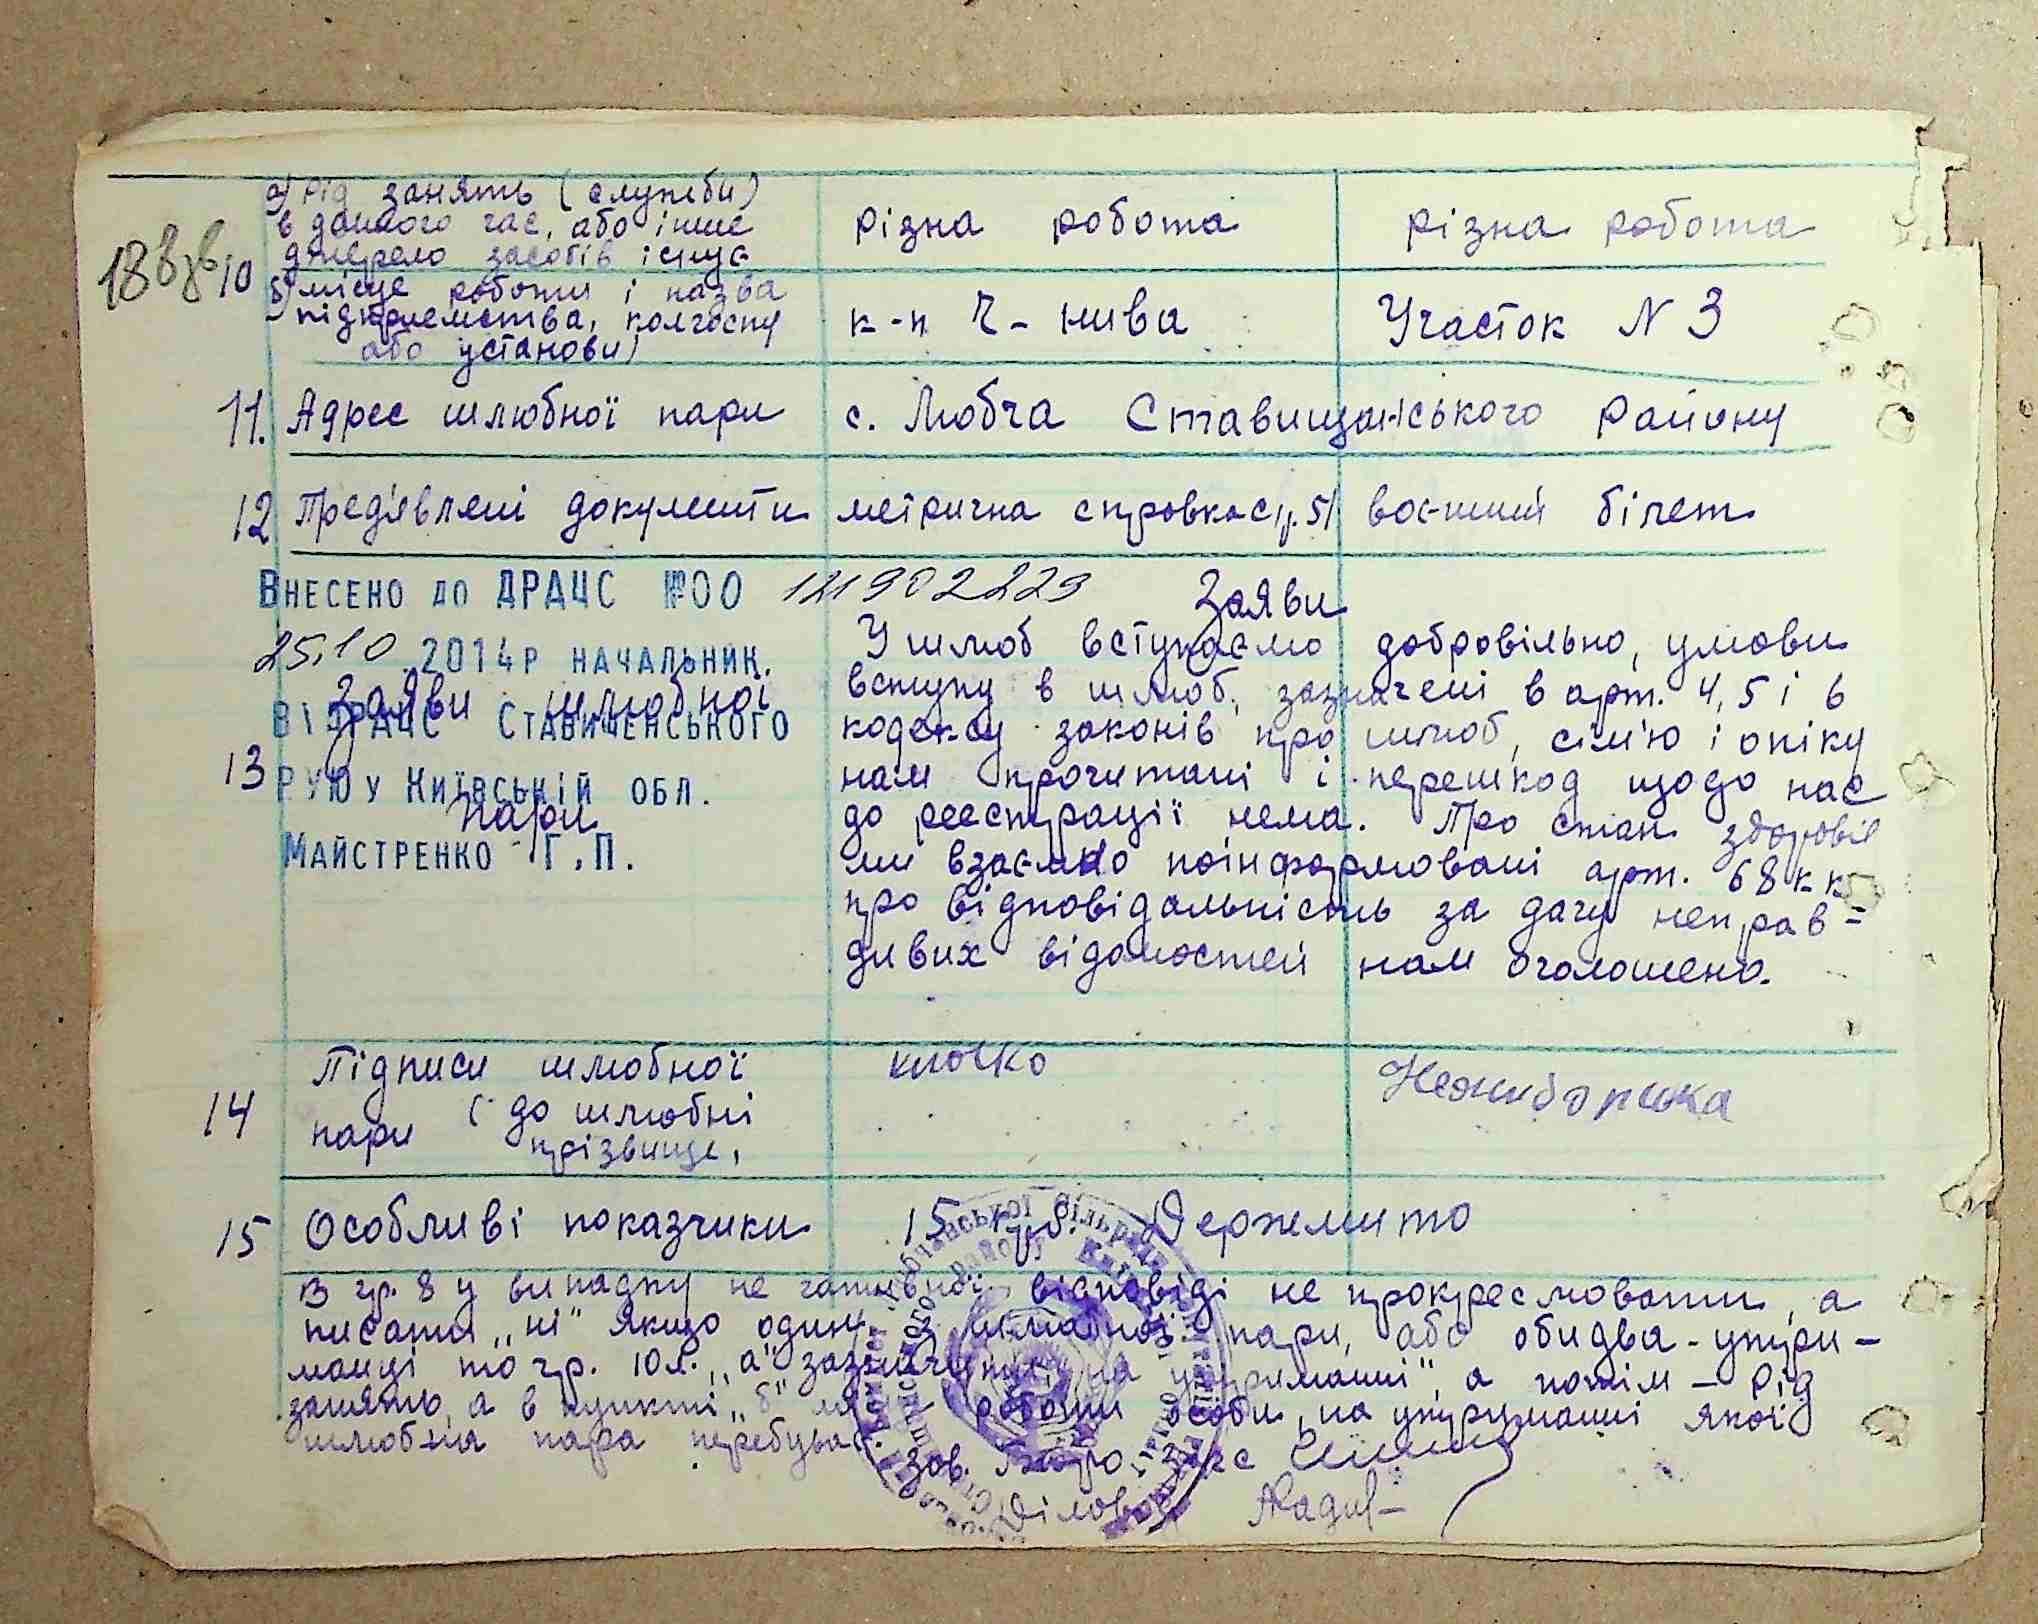 18 в зв
10
а) рід занять (служби)
в даного час, або інше
джерело засобів існує
різна робота
різна робота
б) місце роботи і назва
підприємства, колгоспу
або установи)
к-п Ч-нива
Участок N 3
11. Адрес шлюбної пари
с. Любча Ставищанського району
12 Пред'явлені документи
метрична справка
воєнний білет
ВНЕСЕНО ДО ДРАЦС №00 121902229
25.10.2014Р НАЧАЛЬНИК.
ВІДРАЦС СТАВИЩЕНСЬКОГО
РУЮ У КИЇВСЬКІЙ ОБЛ.
МАЙСТРЕНКО Г.П.
13
Заяви шлюбної
пари
Заяви
У шлюб вступаємо добровільно, умови
вступу в шлюб, зазначені в арт. 4, 5 і 6
кодексу законів про шлюб, сім'ю і опіку
нам прочитані і перешкод щодо нас
до реєстрації нема. Про стан здоровія
ми взаємно поінформовані арт. 68 к к
про відповідальність за дачу неправ-
дивих відомостей нам оголошено.
14
Підписи шлюбної
пари ( до шлюбні
прізвище,
клочко
15 Особливі показчики
15 крб. Держмито
В гр. 8 у випадку не гативної відповіді не прокреслювати, а
писати „ні" Якщо один з шлюбної пари, або обидва-утри-
манці то гр. 10 л. „а" зазначити „на утриманні", а потім - рід
занять, а в пункті „б" роботи особи, на утриманні якої
шлюбна пара перебуває.
зав. Бюро Загс
Діловод